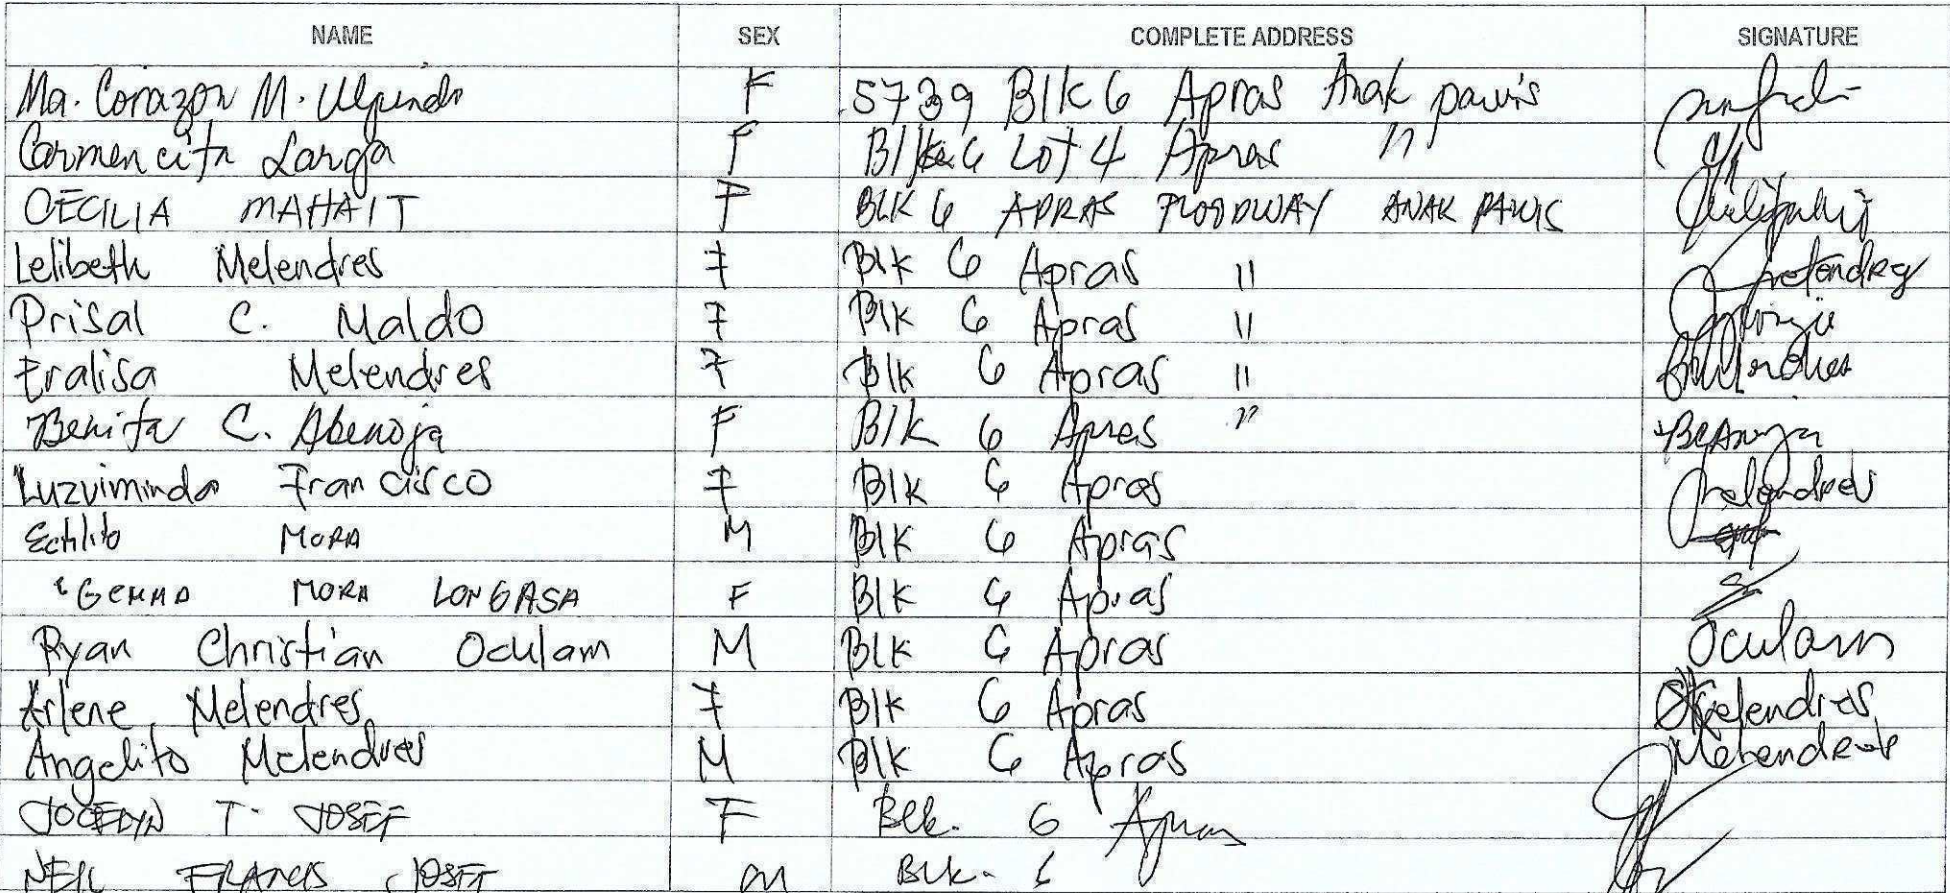 NAME SEX COMPLETE ADDRESS SIGNATURE
Ma. Corazon M. Ulpindo F 5739 Blk 6 Apras Anak pawis
Carmencita Larga F Blk 6 Lot 4 Apras "
CECILIA MAHAIT F BLK 6 APRAS FLOODWAY ANAK PAWIS
Lelibeth Melendres F Blk 6 Apras " Melendres
Prisal C. Maldo F Blk 6 Apras "
Eralisa Melendres F Blk 6 Apras "
Benita C. Abenoja F Blk 6 Apras "
Luzviminda Francisco F Blk 6 Apras
MORA M Blk 6 Apras
GEMMA MORA LONGASA F Blk 6 Apras
Ryan Christian Oculam M Blk 6 Apras Oculam
Arlene Melendres F Blk 6 Apras Melendres
Angelito Melendres M Blk 6 Apras Melendres
JOCELYN T. JOSEF F Blk. 6 Apras
NEIL FRANCIS JOSEF M Blk. 6